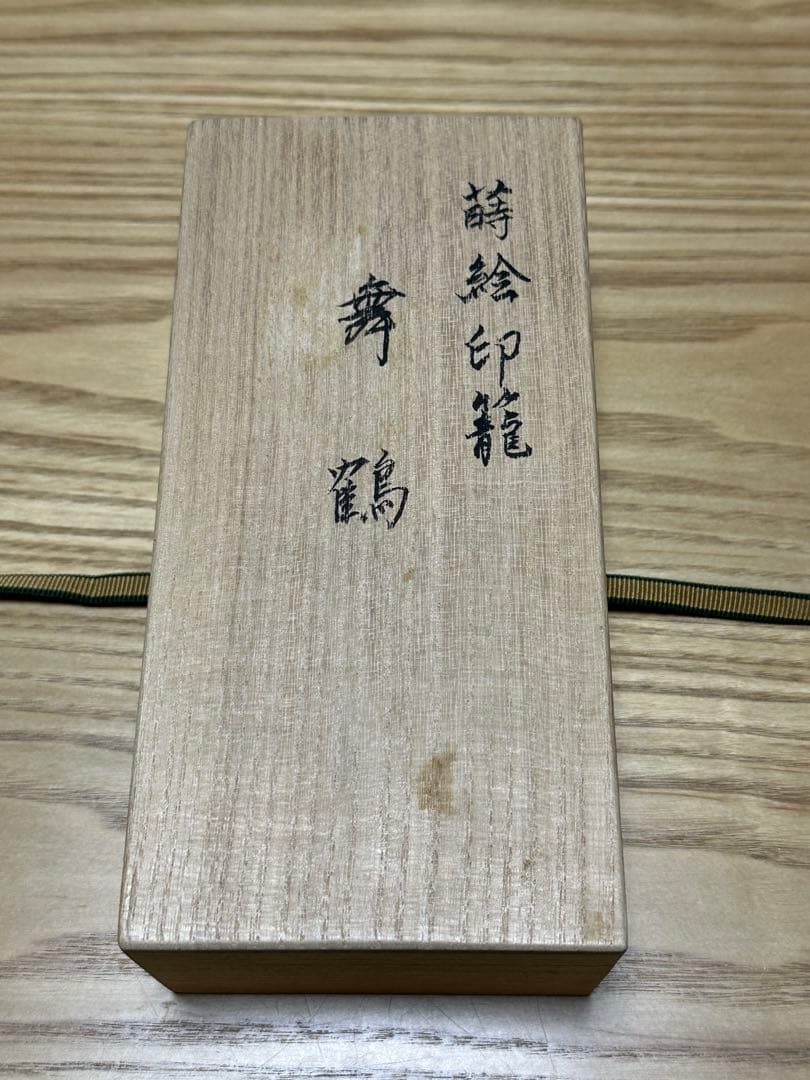 蒔絵印籠
舞鶴